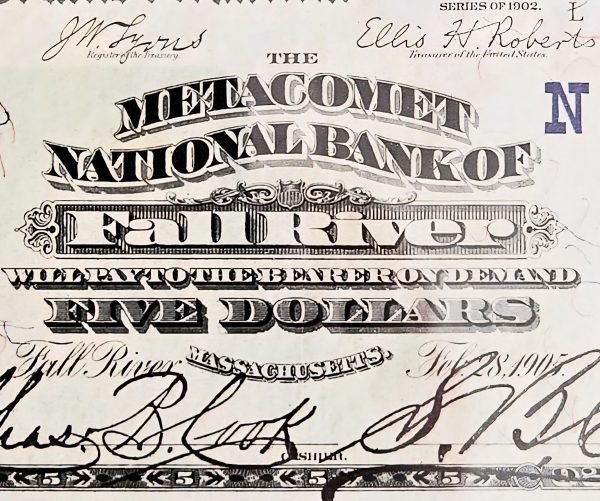 SERIES OF 1902.
J.W. Lyons
Register of the Treasury.
Ellis H. Roberts
Treasurer of the United States.
THE
METACOMET
N
NATIONAL BANK OF
Fall River
WILL PAY TO THE BEARER ON DEMAND
FIVE DOLLARS
Fall River MASSACHUSETTS, Feb. 28, 1905.
Chas. B. Cook
CASHIER.
5 5 5 5 5